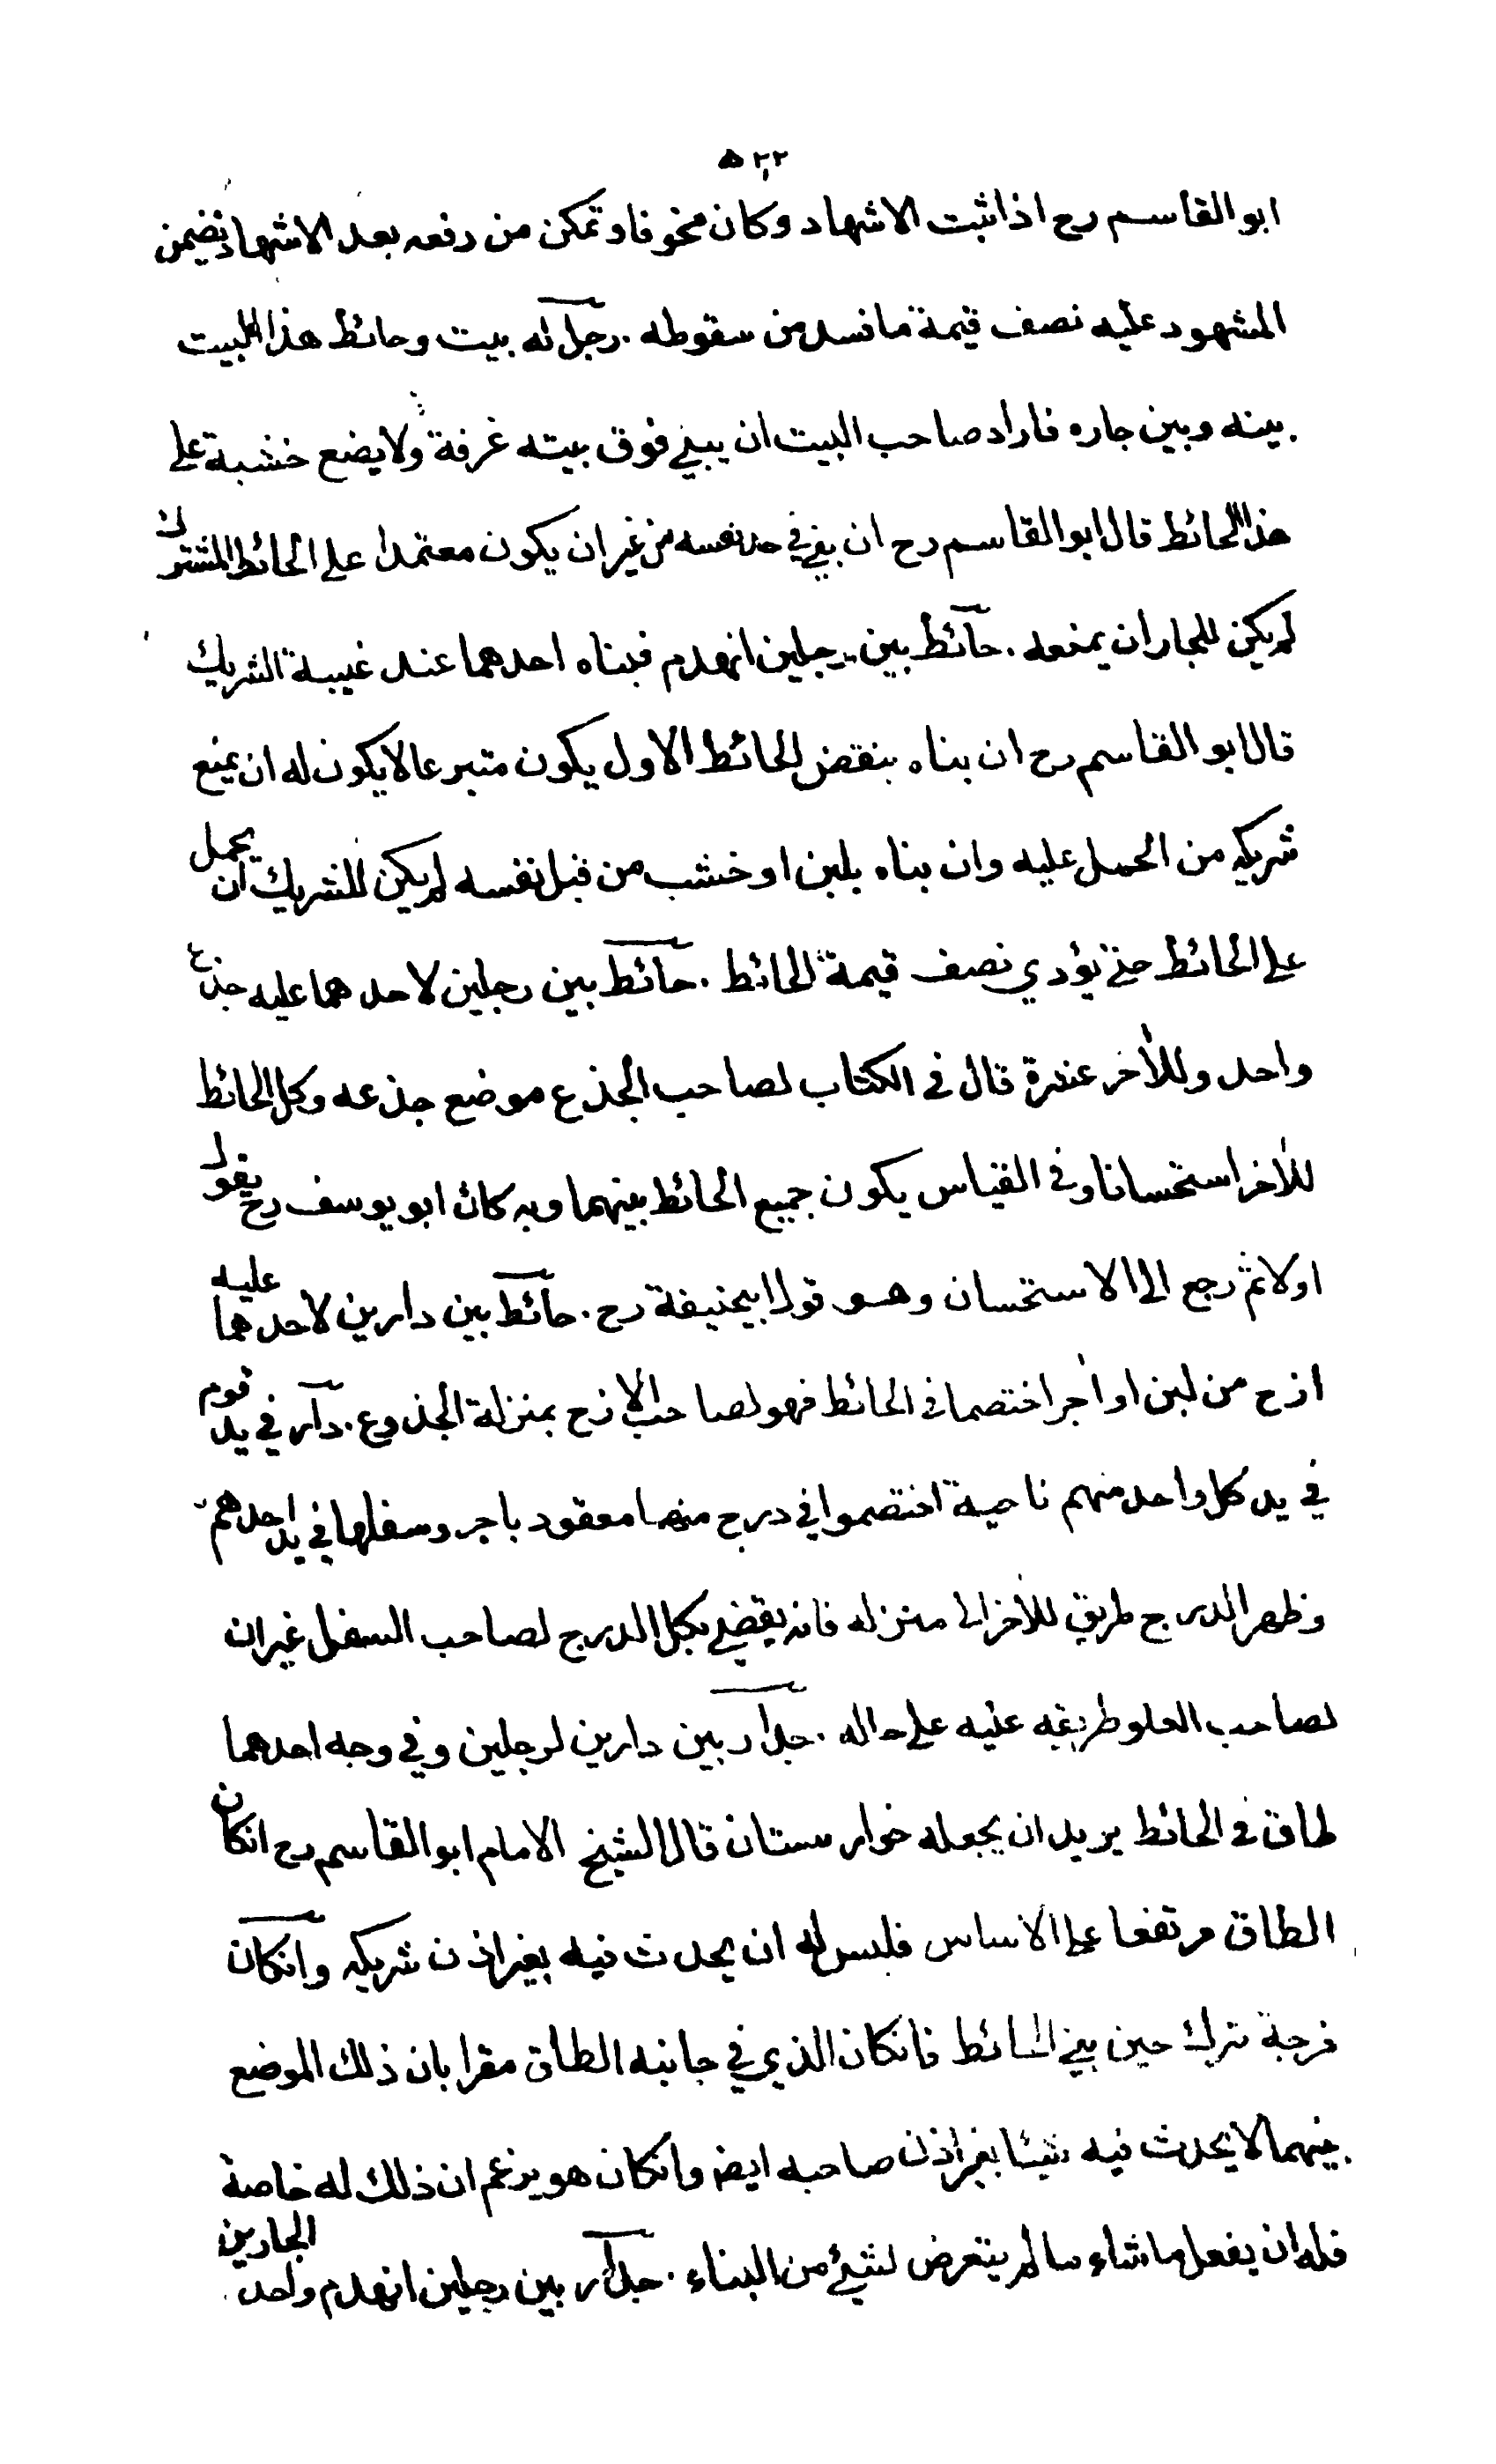 ٥٢٢
ابو القاسم رح اذا ثبت الاشهاد وكان مخوفا وتمكن من رفعه بعد الاشهاد يضمن
المشهود عليه نصف قيمة ما فسد من سقوطه . رجل له بيت وحائط هذا البيت
بينه وبين جاره فاراد صاحب البيت ان يبني فوق بيته غرفة ولا يضع خشبة على
هذا الحائط قال ابو القاسم رح ان بنى في حد نفسه من غير ان يكون معتمدا على الحائط المشترك
لم يكن للجار ان يمنعه . حائط بين رجلين انهدم فبناه احدهما عند غيبة الشريك
قال ابو القاسم رح ان بناه بنقض الحائط الاول يكون متبرعا لا يكون له ان يمنع
شريكه من الحمل عليه وان بناه بلبن او خشب من قبل نفسه لم يكن للشريك ان يحمل
على الحائط حتى يؤدي نصف قيمة الحائط . حائط بين رجلين لاحدهما عليه جذع
واحد وللآخر عشرة قال في الكتاب لصاحب الجذع موضع جذعه وكل الحائط
للآخر استحسانا وفي القياس يكون جميع الحائط بينهما وبه كان ابو يوسف رح يقول
اولا ثم رجع الى الاستحسان وهو قول ابيحنيفة رح . حائط بين دارين لاحدهما عليه
ازج من لبن او آجر اختصما في الحائط فهو لصاحب الازج بمنزلة الجذوع . دار في يد قوم
في يد كل واحد منهم ناحية اختصموا في درج منها معقود باجر وسفلها في يد احدهم
وظهر الدرج طريق للآخر الى منزله فانه يقضى بكل الدرج لصاحب السفل غير ان
لصاحب العلو طريقه عليه على حاله . جدار بين دارين لرجلين وفي وجه احدهما
طاق في الحائط يريد ان يجعله خوارستان قال الشيخ الامام ابو القاسم رح انكان
الطاق مرتفعا على الاساس فليس له ان يحدث فيه بغير اذن شريكه وانكان
فرجة ترك حين بني الحائط فانكان الذي في جانبه الطاق مقرا بان ذلك الموضع
بينهما لا يحدث فيه شيئا بغير اذن صاحبه ايض وانكان هو يزعم ان ذلك له خاصة
فله ان يفعل ما شاء ما لم يتعرض لشيء من البناء . جدار بين رجلين انهدم واحد الجارين